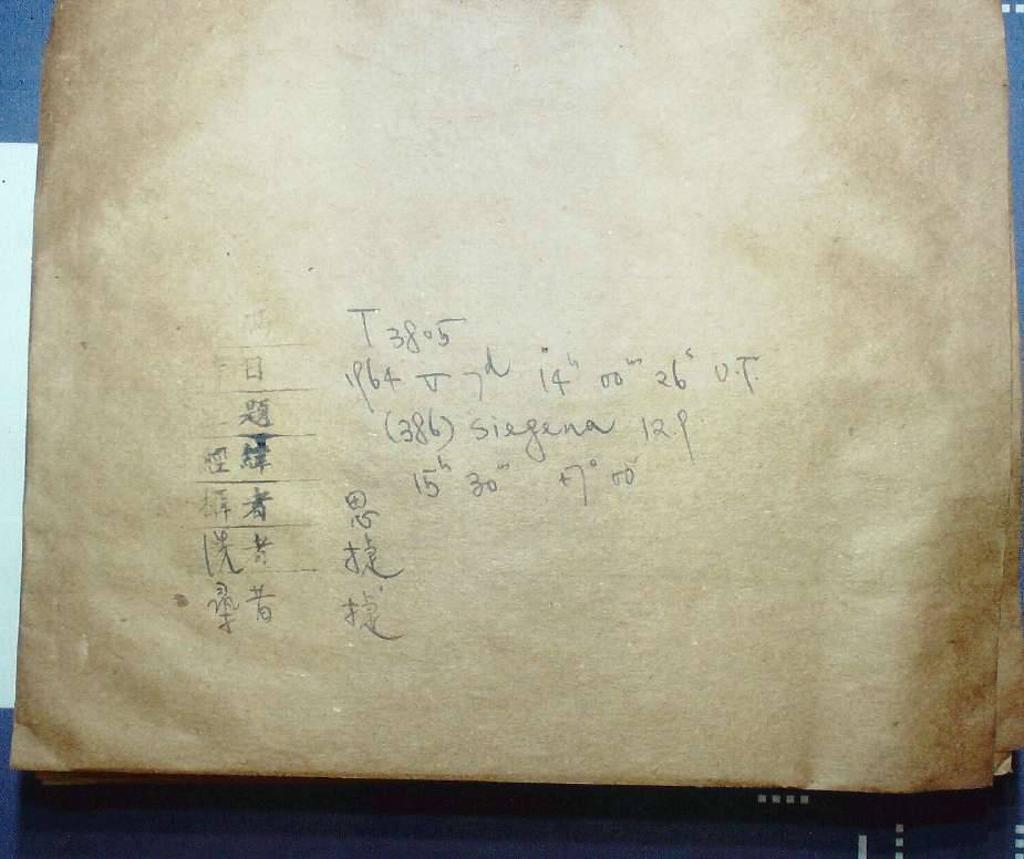 號 T 3805
日 1964 V 7ᵈ 14ʰ 00ᵐ 26ˢ U.T.
題 (386) Siegena 12.9
經緯 15ʰ 30ᵐ +7° 00'
攝者 思
洗者 捷
尋者 捷